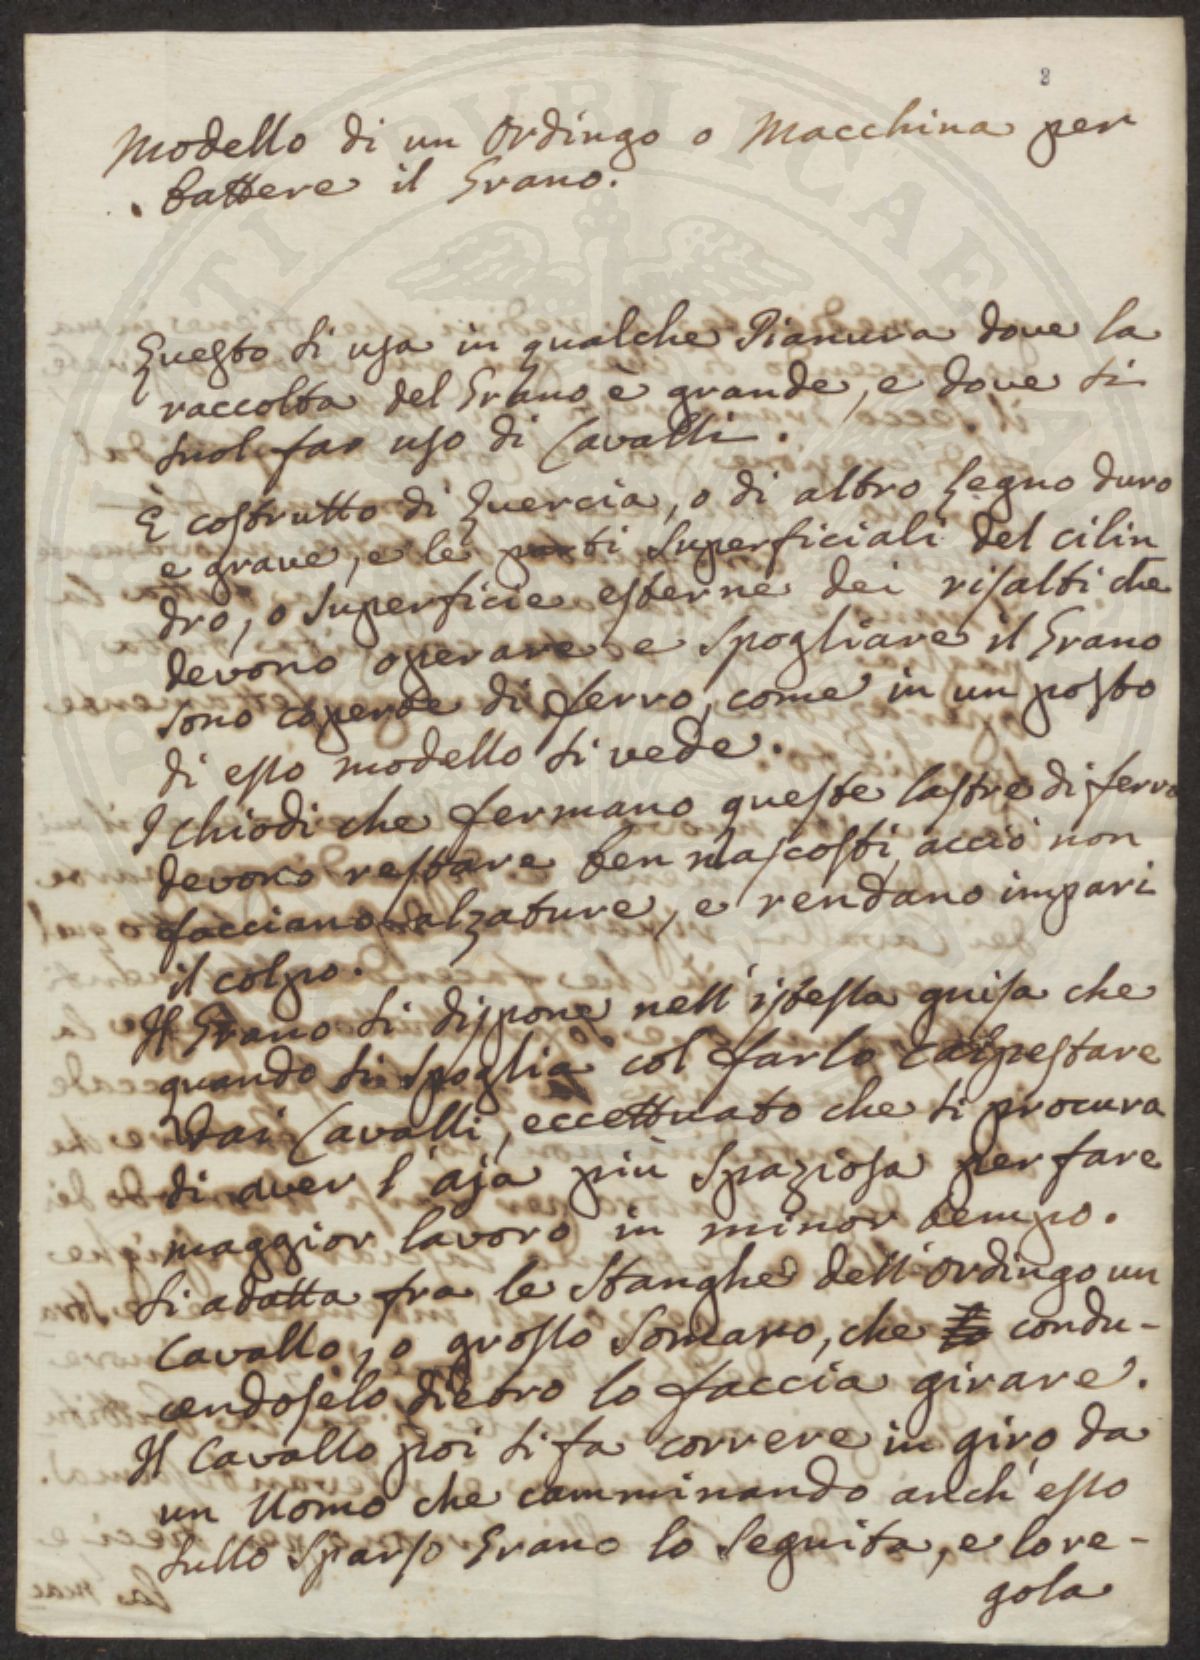 2
Modello di un Ordingo o Macchina per
battere il Grano.
Questo si usa in qualche Pianura dove la
raccolta del Grano è grande, e dove si
suol far uso di Cavalli.
È costrutto di Quercia, o di altro Legno duro
e grave, e le parti superficiali del cilin
dro, o superficie esterne dei risalti che
devono operare e spogliare il Grano
sono coperte di ferro, come in un posto
di esso modello si vede.
I chiodi che fermano queste lastre di ferro
devono restare ben nascosti, acciò non
facciano alzature, e rendano impari
il colpo.
Il Grano si dispone nell'istessa guisa che
quando si spoglia col farlo calpestare
dai Cavalli, eccettuato che si procura
di aver l'aja più spaziosa per fare
maggior lavoro in minor tempo.
Si adatta fra le Stanghe dell'Ordingo un
Cavallo, o grosso Somaro, che condu-
cendoselo dietro lo faccia girare.
Il Cavallo poi si fa correre in giro da
un Uomo che camminando anch'esso
sullo sparso Grano lo seguita, e lo re-
gola